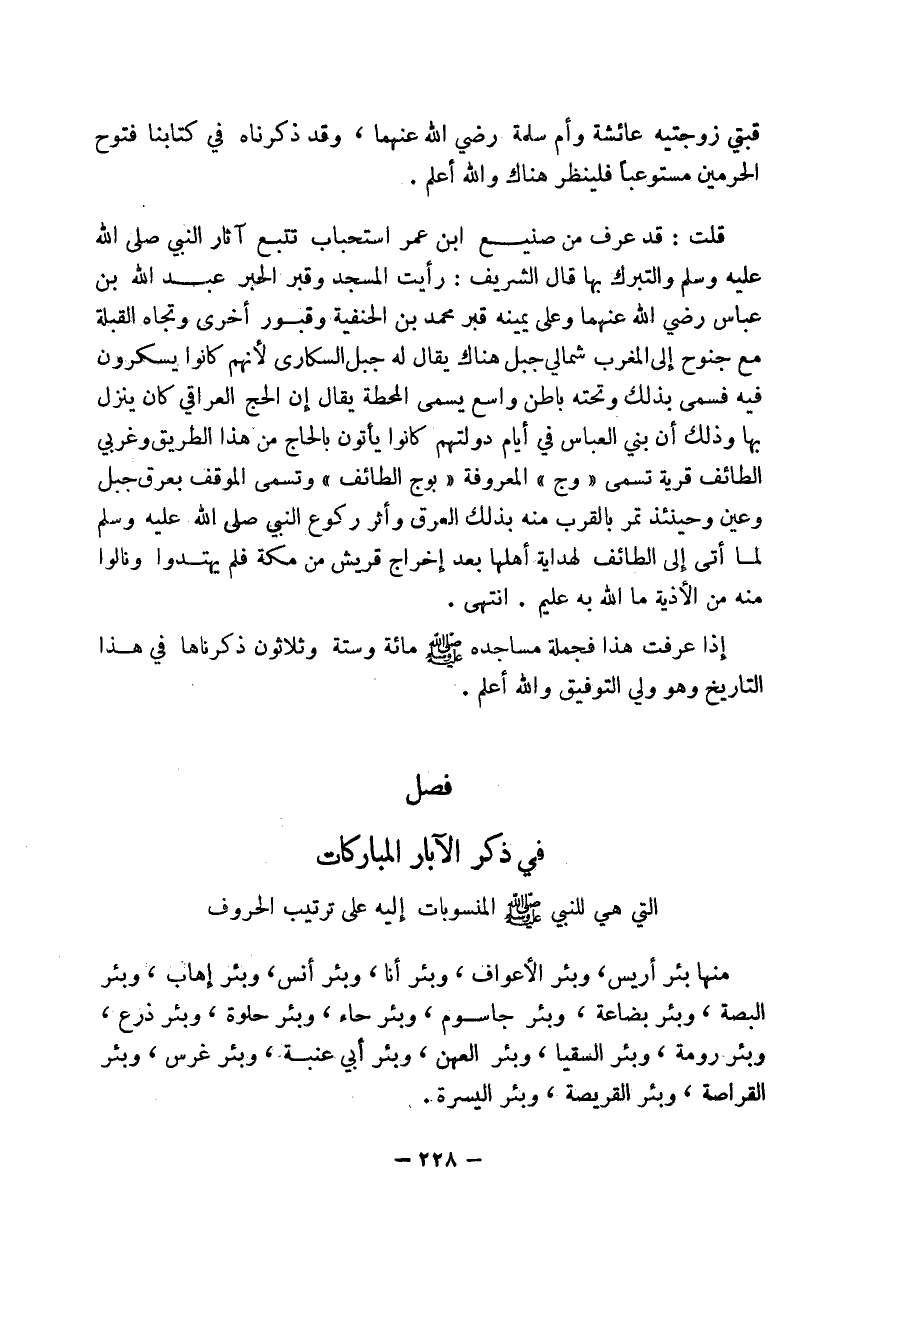 قبتي زوجتيه عائشة وأم سلمة رضي الله عنهما ، وقد ذكرناه في كتابنا فتوح
الحرمين مستوعباً فلينظر هناك والله أعلم .
قلت : قد عرف من صنيع ابن عمر استحباب تتبع آثار النبي صلى الله
عليه وسلم والتبرك بها قال الشريف : رأيت المسجد وقبر الحبر عبد الله بن
عباس رضي الله عنهما وعلى يمينه قبر محمد بن الحنفية وقبور أخرى وتجاه القبلة
مع جنوح إلى المغرب شمالي جبل هناك يقال له جبل السكارى لأنهم كانوا يسكرون
فيه فسمى بذلك وتحته باطن واسع يسمى المحطة يقال إن الحج العراقي كان ينزل
بها وذلك أن بني العباس في أيام دولتهم كانوا يأتون بالحاج من هذا الطريق وغربي
الطائف قرية تسمى « وج » المعروفة « بوج الطائف » وتسمى الموقف بعرق جبل
وعين وحينئذ تمر بالقرب منه بذلك العرق وأثر ركوع النبي صلى الله عليه وسلم
لما أتى إلى الطائف لهداية أهلها بعد إخراج قريش من مكة فلم يهتدوا ونالوا
منه من الأذية ما الله به عليم . انتهى .
إذا عرفت هذا فجملة مساجده ﷺ مائة وستة وثلاثون ذكرناها في هذا
التاريخ وهو ولي التوفيق والله أعلم .
فصل
في ذكر الآبار المباركات
التي هي للنبي ﷺ المنسوبات إليه على ترتيب الحروف
منها بئر أريس، وبئر الأعواف ، وبئر أنا ، وبئر أنس، وبئر إهاب ، وبئر
البصة ، وبئر بضاعة ، وبئر جاسوم ، وبئر حاء ، وبئر حلوة ، وبئر ذرع ،
وبئر رومة ، وبئر السقيا ، وبئر العهن ، وبئر أبي عنبة ، وبئر غرس ، وبئر
القراصة ، وبئر القريصة ، وبئر اليسرة .
– ٢٢٨ –